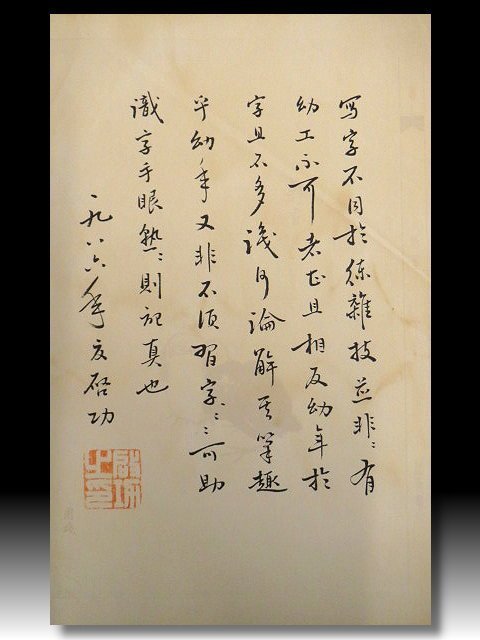 寫字不同於練雜技並非〻有
幼工不可者甚且相反幼年於
字且不多識何論解其筆趣
乎幼年又非不須習字〻〻可助
識字手眼熟〻則記真也
一九八六年夏啓功
啟功之印